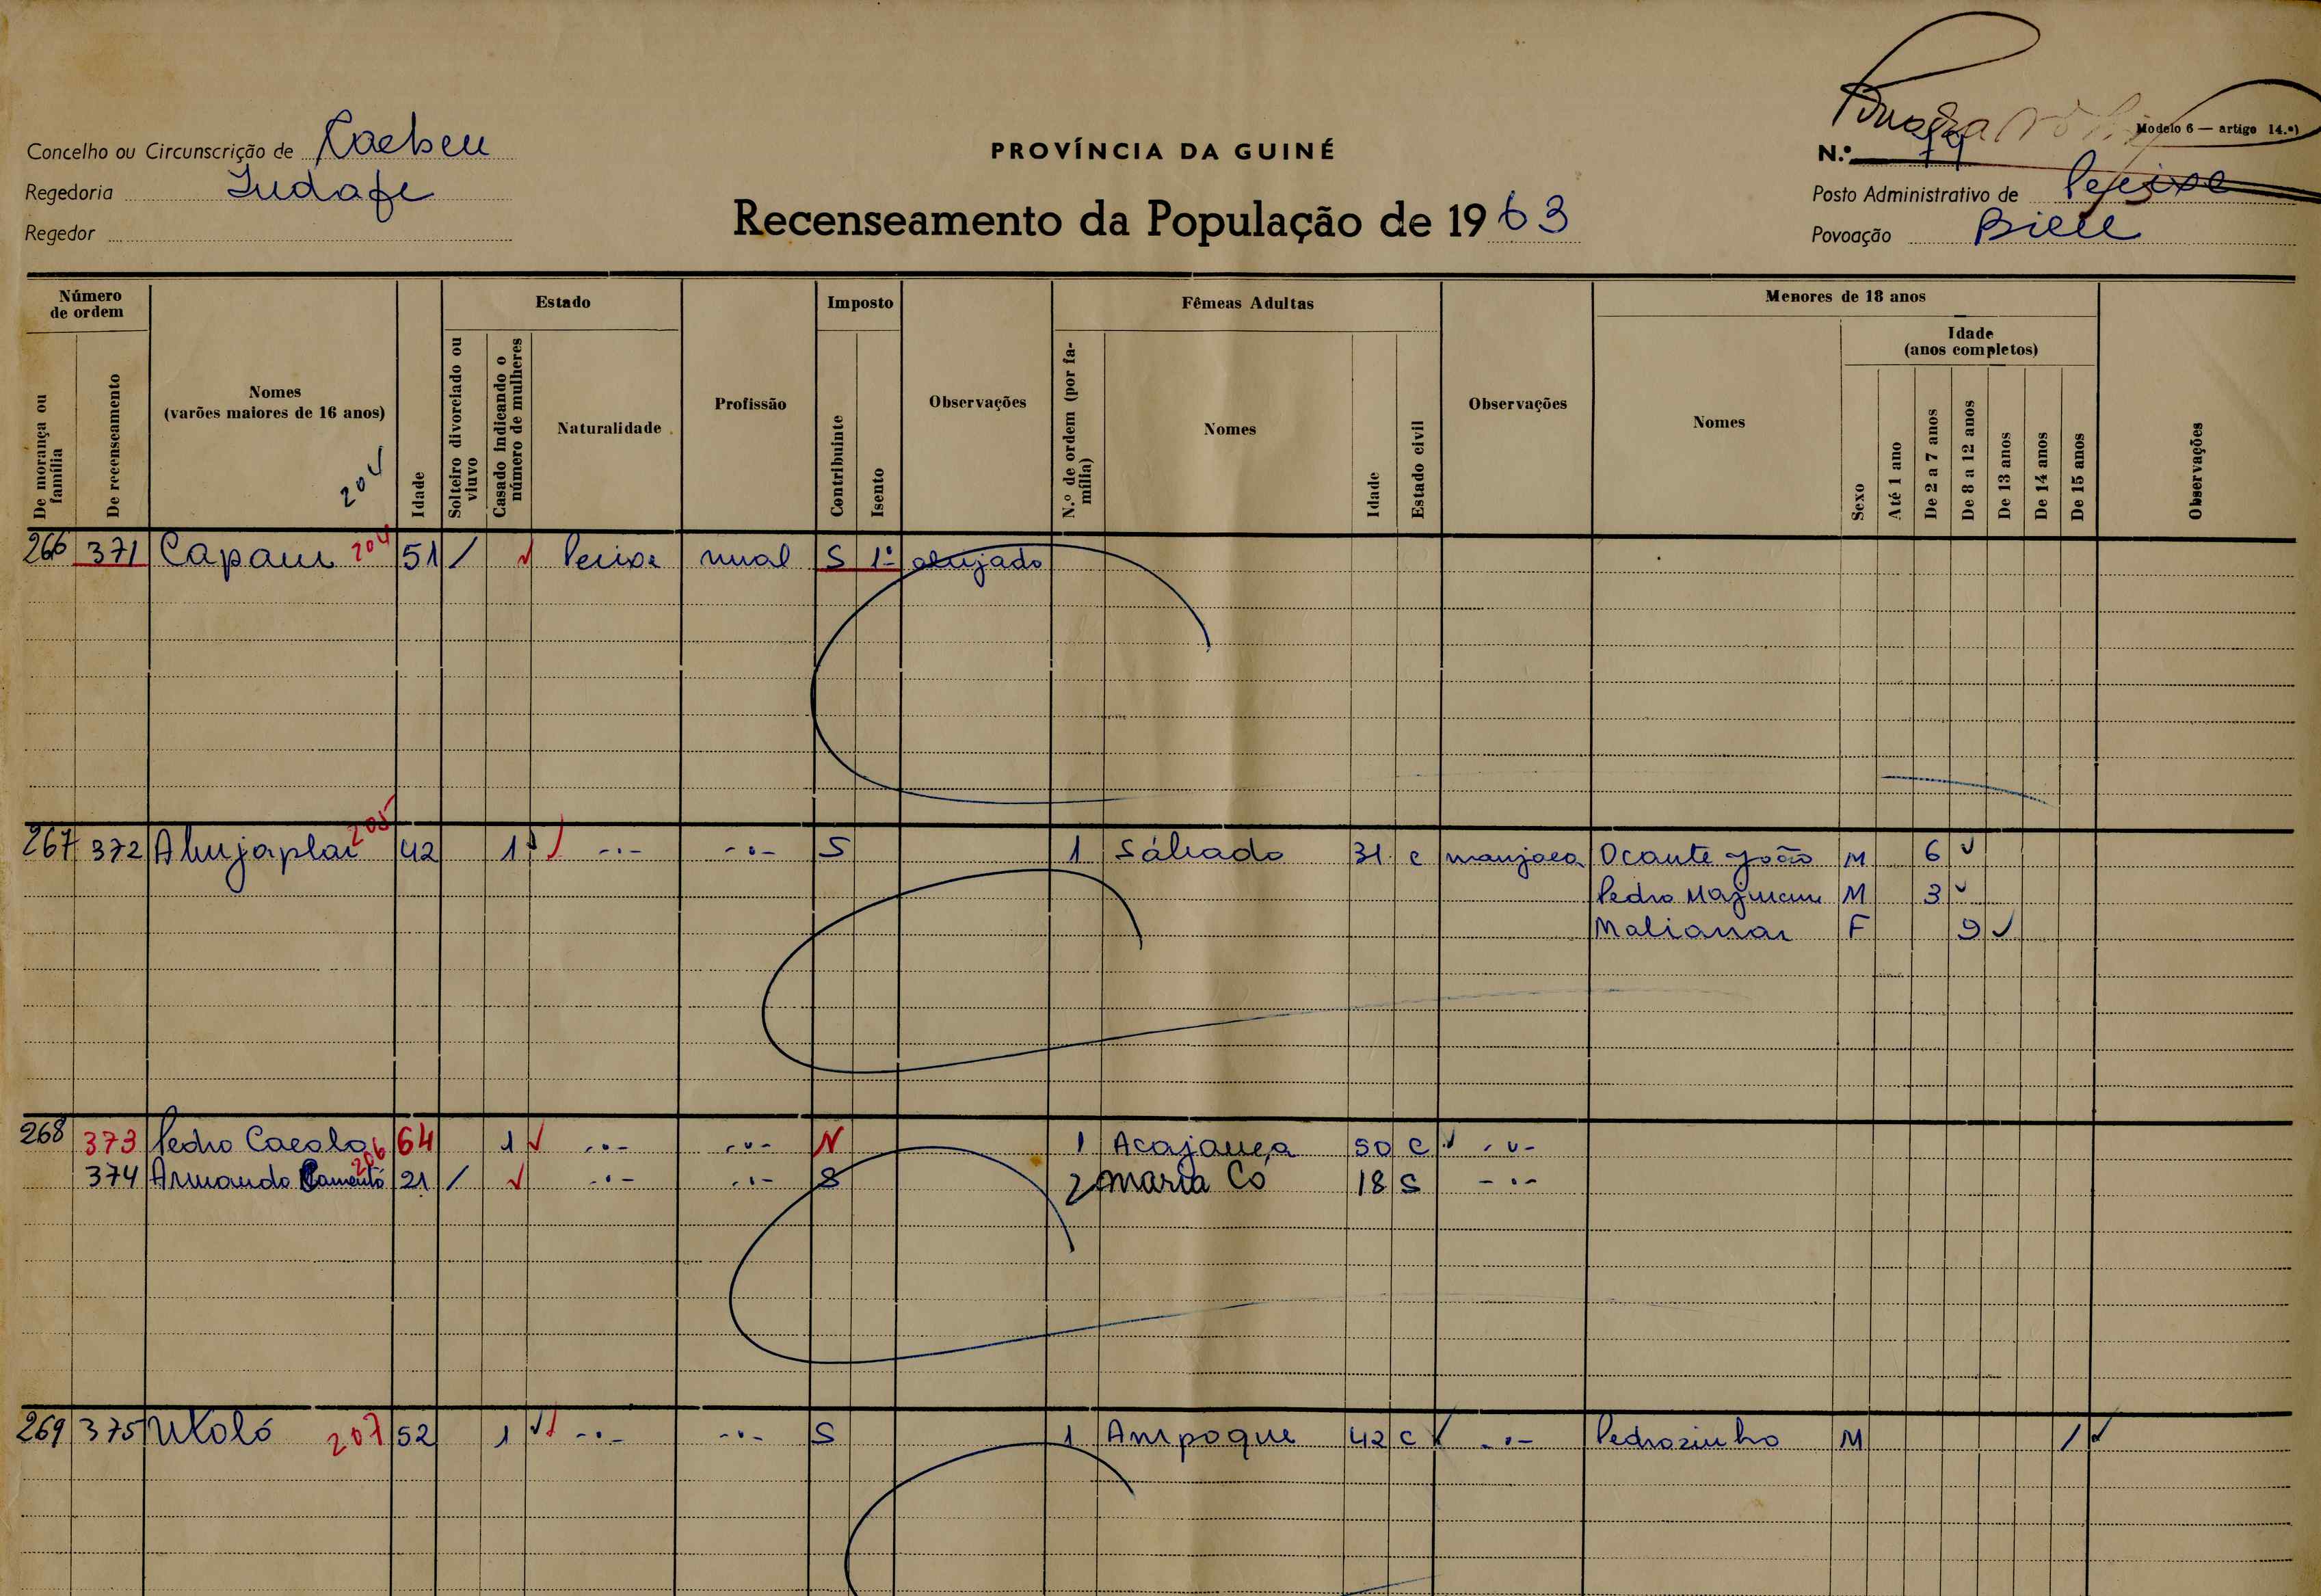 Modelo 6 — artigo 14.º)
Concelho ou Circunscrição de Caebeu
PROVÍNCIA DA GUINÉ
N.º 79
Regedoria
Posto Administrativo de Pejeixe
Recenseamento da População de 1963
Regedor
Povoação
Número de ordem
Estado
Imposto
Fêmeas Adultas
Menores de 18 anos
Idade
(anos completos)
De morança ou família
De recenseamento
Nomes
(varões maiores de 16 anos)
204
Idade
Solteiro divorciado ou viuvo
Casado indicando o número de mulheres
Naturalidade
Profissão
Contribuinte
Isento
Observações
N.º de ordem (por família)
Nomes
Idade
Estado civil
Observações
Nomes
Sexo
Até 1 ano
De 2 a 7 anos
De 8 a 12 anos
De 13 anos
De 14 anos
De 15 anos
Observações
266 371 204 51 / Peixe rural S 1º alujado
267 372 Alujaplai 205 42 1 -.- -.- S 1 Sábado 31 c manjaca Ocante João M 6
Pedro M 3
Malianai F 9
268 373 Pedro Cacalo 64 1 -.- -.- N 1 50 C -.-
374 Armando 206 21 / -.- -.- S 2 Maria Có 18 S -.-
269 375 Utoló 207 52 1 -.- -.- S 1 Ampoque 42 C -.- Pedrozinho M 1